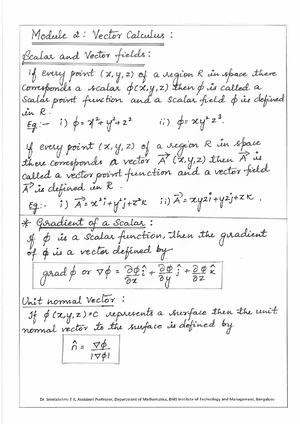 Module 2: Vector Calculus:
Scalar and Vector fields:
If every point (x,y,z) of a region R in space there
corresponds a scalar ϕ(x,y,z) then ϕ is called a
scalar point function and a scalar field ϕ is defined
in R.
Eg:- i) ϕ = x²+y²+z² ii) ϕ = xy²z³.
If every point (x,y,z) of a region R in space
there corresponds a vector A⃗ (x,y,z) then A⃗ is
called a vector point function and a vector field
A⃗ is defined in R.
Eg:- i) A⃗ = x²i+y²j+z²k ii) A⃗ = xyzi+yzj+zk.
* Gradient of a Scalar:
If ϕ is a scalar function, then the gradient
of ϕ is a vector defined by
grad ϕ or ∇ϕ = ∂ϕ/∂x î + ∂ϕ/∂y ĵ + ∂ϕ/∂z k̂
Unit normal Vector:
If ϕ(x,y,z)=c represents a surface then the unit
normal vector to the surface is defined by
n̂ = ∇ϕ/|∇ϕ|
Assistant Professor, Department of Mathematics, BMS Institute of Technology and Management, Bengaluru